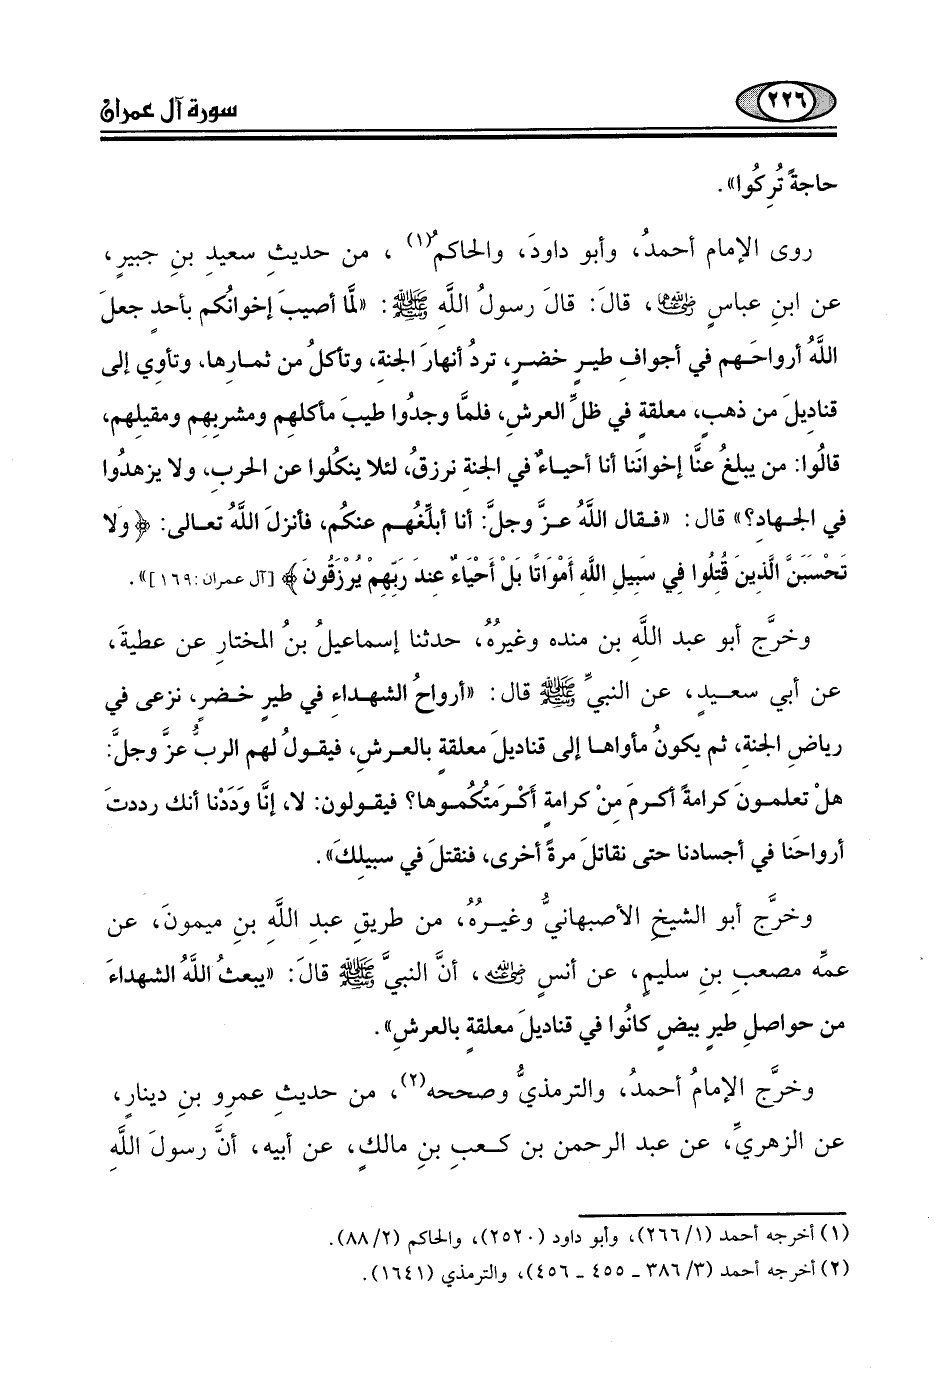 ٢٢٦
سورة آل عمران
حاجةً تُرِكُوا».
روى الإمام أحمدُ، وأبو داودَ، والحاكمُ(١) ، من حديثِ سعيدِ بنِ جبيرٍ،
عن ابنِ عباسٍ رضي الله عنهما، قالَ: قالَ رسولُ اللَّه ﷺ: «لمَّا أصيبَ إخوانُكم بأحدٍ جعلَ
اللَّهُ أرواحَهم في أجوافِ طيرٍ خضرٍ، تردُ أنهارَ الجنةِ، وتأكلُ من ثمارِها، وتأوي إلى
قناديلَ من ذهبٍ، معلقةٍ في ظلِّ العرشِ، فلمَّا وجدُوا طيبَ مأكلهِم ومشربِهم ومقيلِهم،
قالُوا: من يبلغُ عنَّا إخوانَنا أنا أحياءٌ في الجنةِ نرزقُ، لئلا ينكُلوا عن الحربِ، ولا يزهدُوا
في الجهادِ؟» قال: «فقال اللَّهُ عزَّ وجلَّ: أنا أبلِّغُهم عنكُم، فأنزلَ اللَّهُ تعالى: ﴿وَلا
تَحْسَبَنَّ الَّذِينَ قُتِلُوا فِي سَبِيلِ اللَّهِ أَمْوَاتًا بَلْ أَحْيَاءٌ عِندَ رَبِّهِمْ يُرْزَقُونَ﴾ [آل عمران: ١٦٩]».
وخرَّج أبو عبد اللَّهِ بن منده وغيرُهُ، حدثنا إسماعيلُ بنُ المختارِ عن عطيةَ،
عن أبي سعيدٍ، عن النبيِّ ﷺ قال: «أرواحُ الشهداءِ في طيرٍ خضرٍ، نزعى في
رياضِ الجنةِ، ثم يكونُ مأواها إلى قناديلَ معلقةٍ بالعرشِ، فيقولُ لهم الربُّ عزَّ وجلَّ:
هلْ تعلمونَ كرامةً أكرمَ مِنْ كرامةٍ أكْرمَتُكُموها؟ فيقولون: لا، إنَّا وَدَدْنا أنك رددتَ
أرواحَنا في أجسادنا حتى نقاتلَ مرةً أخرى، فنقتلَ في سبيلِكَ».
وخرَّج أبو الشيخِ الأصبهانيُّ وغيرُهُ، من طريقِ عبد اللَّهِ بنِ ميمونَ، عن
عمِّه مصعبِ بنِ سليمٍ، عن أنسٍ رضي الله عنه، أنَّ النبيَّ ﷺ قالَ: «يبعثُ اللَّهُ الشهداءَ
من حواصلِ طيرٍ بيضٍ كانُوا في قناديلَ معلقةٍ بالعرشِ».
وخرَّج الإمامُ أحمدُ، والترمذيُّ وصححه(٢)، من حديثِ عمرِو بنِ دينارٍ،
عن الزهريِّ، عن عبد الرحمنِ بن كعبِ بنِ مالكٍ، عن أبيه، أنَّ رسولَ اللَّهِ
(١) أخرجه أحمد (٢٦٦/١)، وأبو داود (٢٥٢٠)، والحاكم (٨٨/٢).
(٢) أخرجه أحمد (٣٨٦/٣ ـ ٤٥٥ ـ ٤٥٦)، والترمذي (١٦٤١).